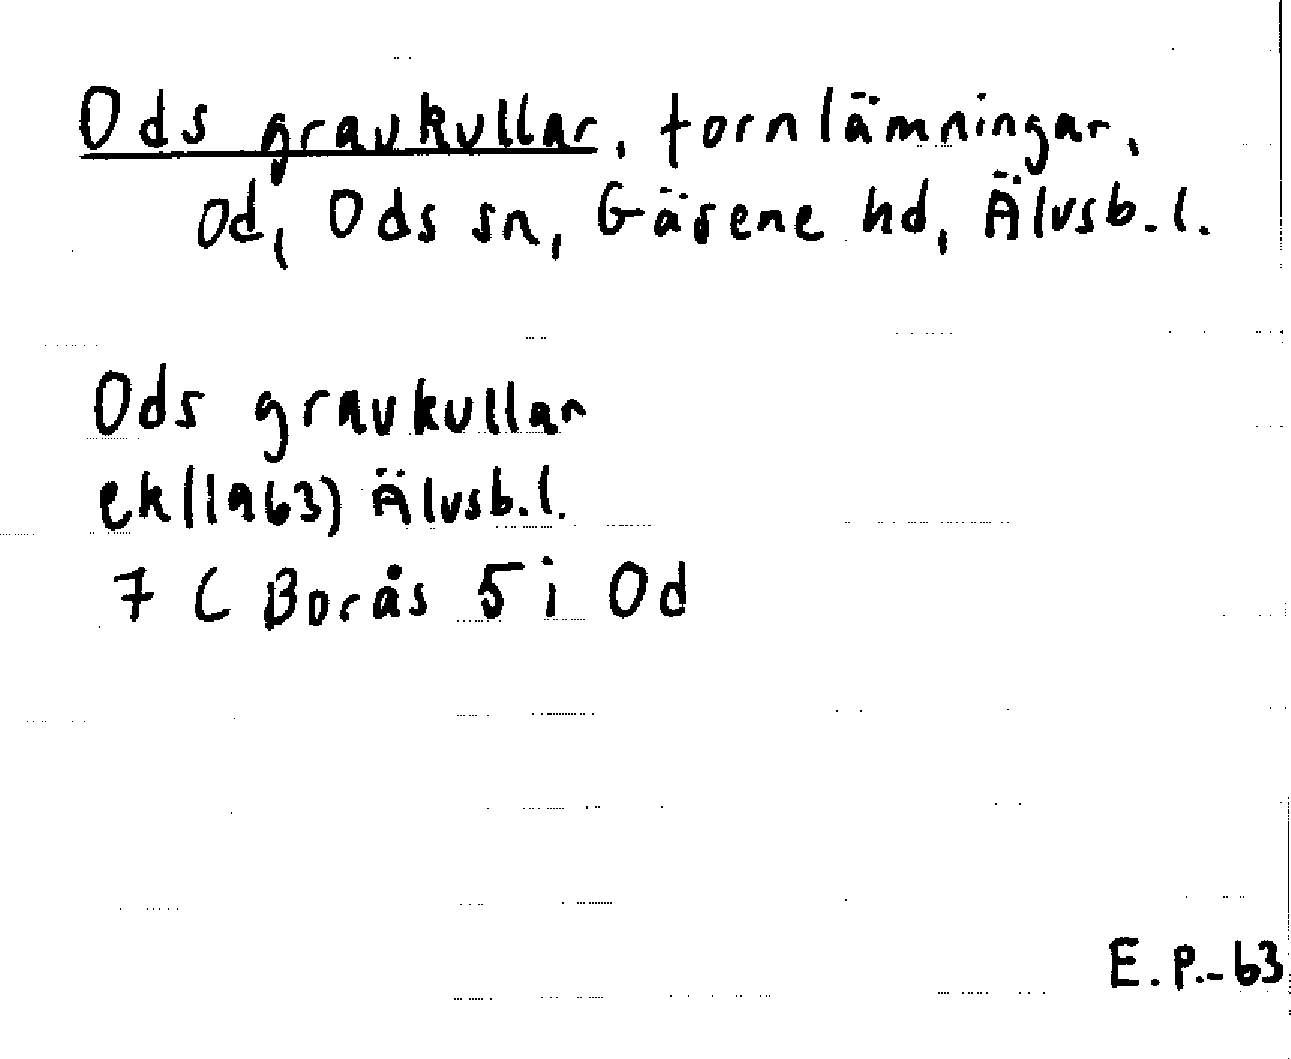 Ods gravkullar, fornlämningar,
Od, Ods sn, Gäsene hd, Älvsb.l.
Ods gravkullar
ek(1963) Älvsb.l.
7 C Borås 5 i Od
E.P.-63